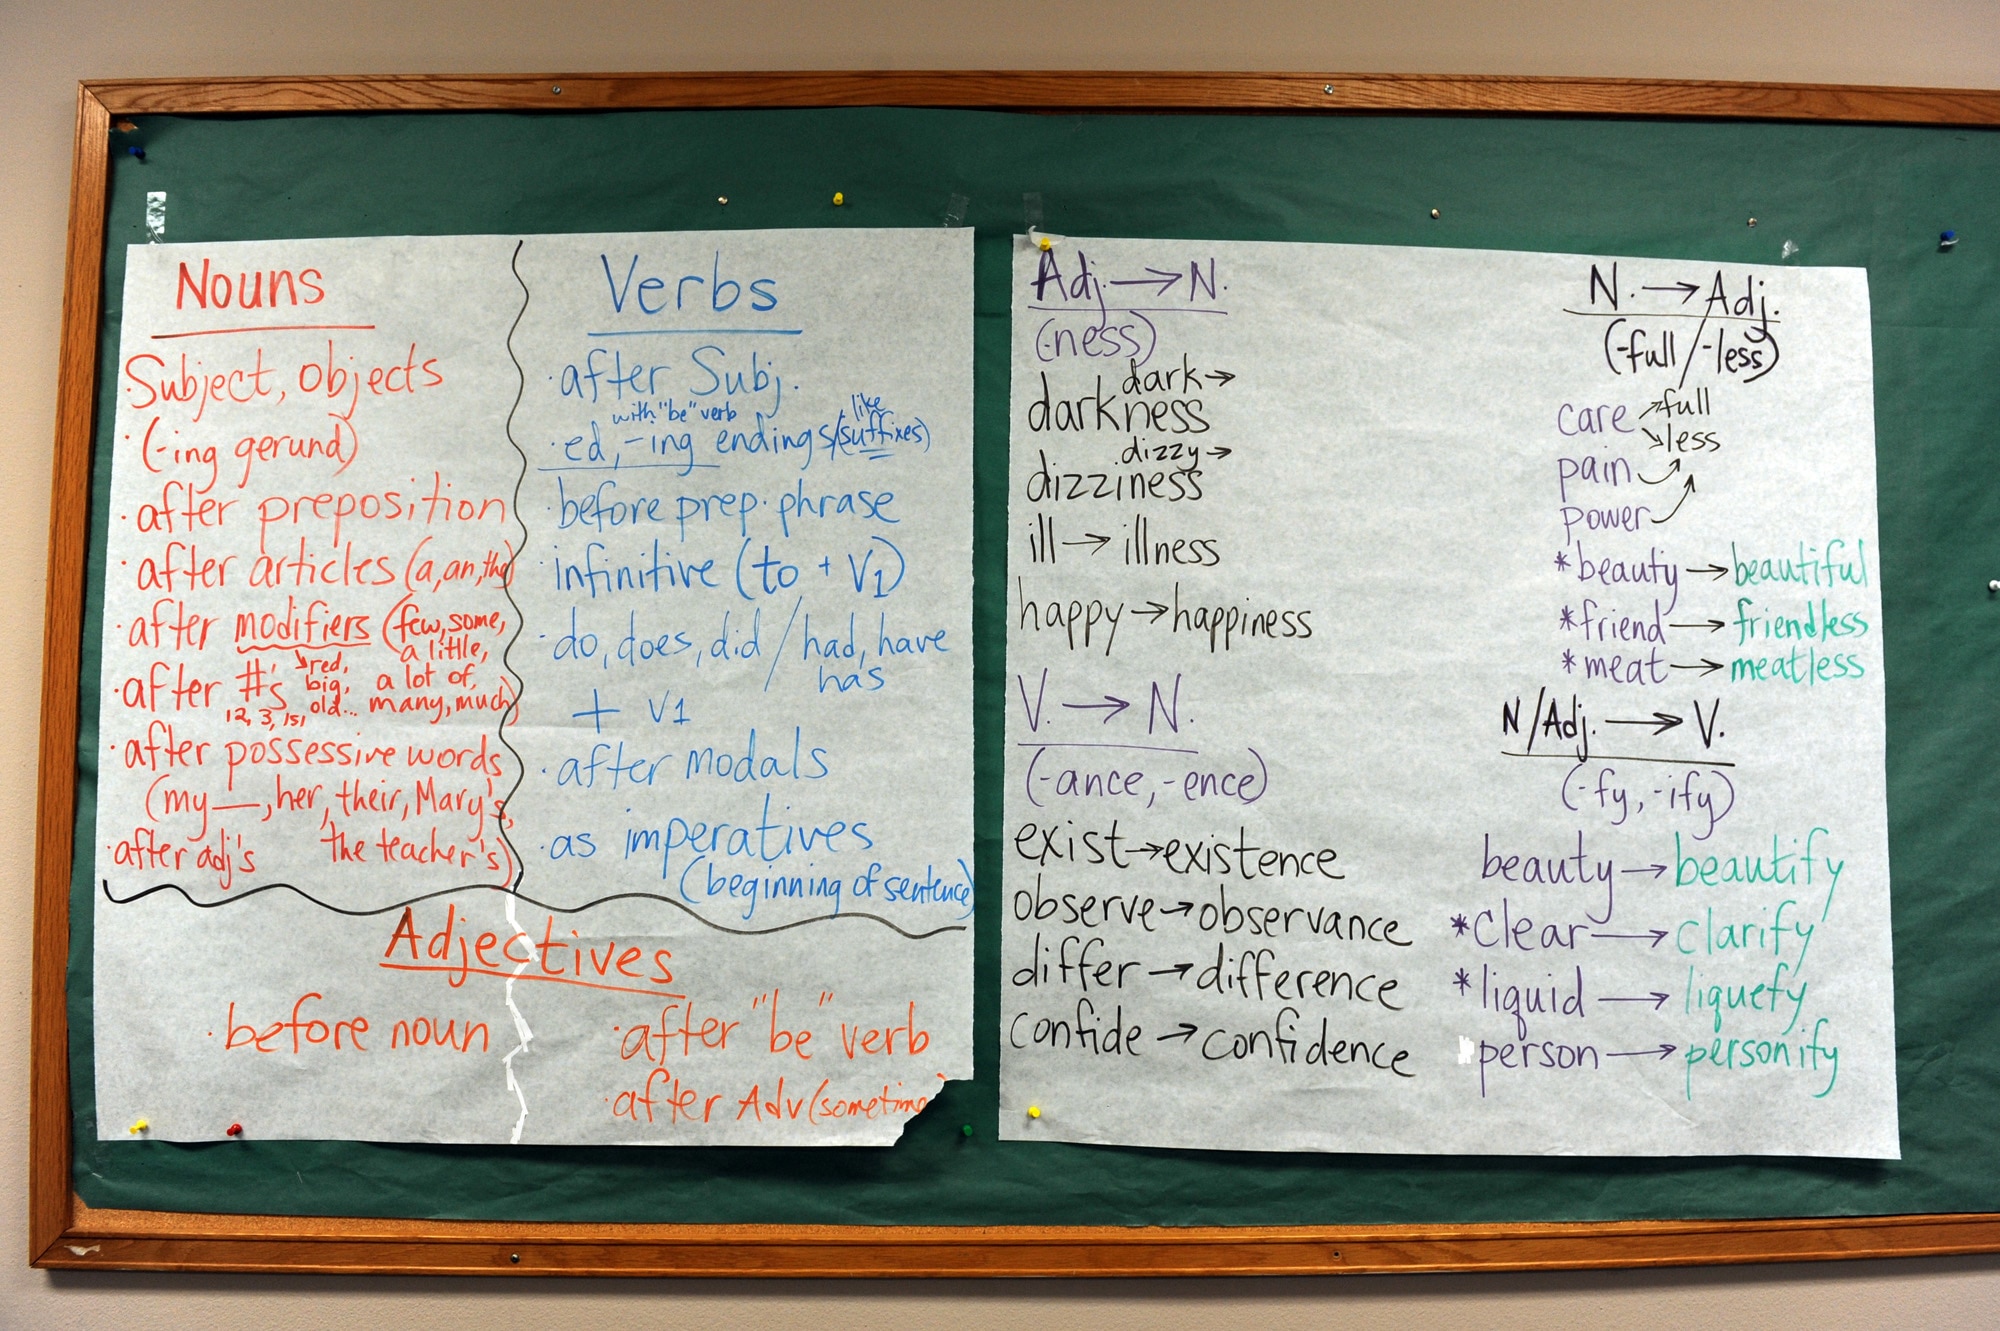 Nouns
Subject, objects
(-ing gerund)
· after preposition
· after articles (a, an, the)
· after modifiers (few, some,
a little,
red,
big,
old...
a lot of,
many, much)
· after #'s
12, 3, 15,
· after possessive words
(my __, her, their, Mary's,
the teacher's)
· after adj's
Verbs
· after Subj.
with "be" verb
like
· ed, -ing endings/(suffixes)
· before prep. phrase
· infinitive (to + V1)
· do, does, did / had, have
has
+ V1
· after modals
· as imperatives
(beginning of sentence)
Adjectives
· before noun
· after "be" verb
· after Adv (sometime
Adj. → N.
(-ness)
dark →
darkness
dizzy →
dizziness
ill → illness
happy → happiness
V. → N.
(-ance, -ence)
exist → existence
observe → observance
differ → difference
confide → confidence
N. → Adj.
(-full / -less)
care → full
→ less
pain
power
* beauty → beautiful
* friend → friendless
* meat → meatless
N/Adj. → V.
(-fy, -ify)
beauty → beautify
* clear → clarify
* liquid → liquefy
person → personify